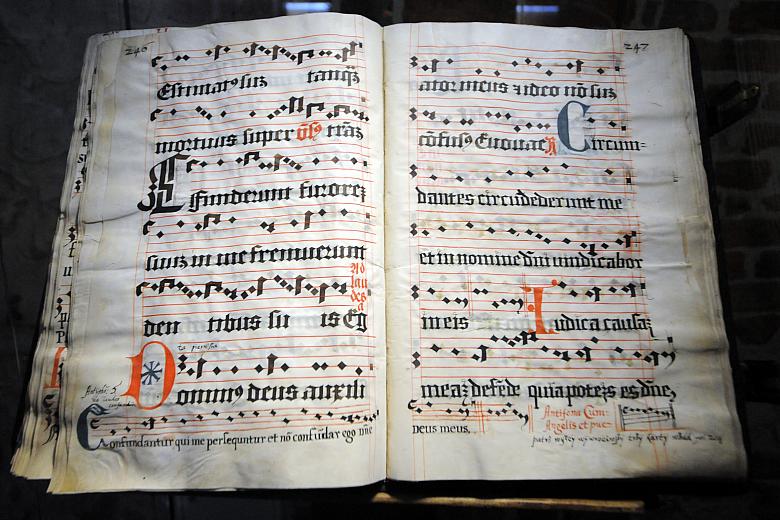 246
Estimatus sūz tanq̄z
mortuus super ōs trāz
Effunderunt furorez
suuz in me fremuerunt
den tibus su is Eg
Ad laudes a
Dominus deus auxili
Confundantur qui me persequntur et nō confūdar ego dn̄e
247
ator meus z ideo nō suz
cōfusus Euouae R Circum=
dantes circūdederunt me
et in nomine dn̄i vindicabor
in eis Iudica causaz
meaz defēde quia potēs es dn̄e,
Deus meus.
Antifona Cum
Angelis et pue-